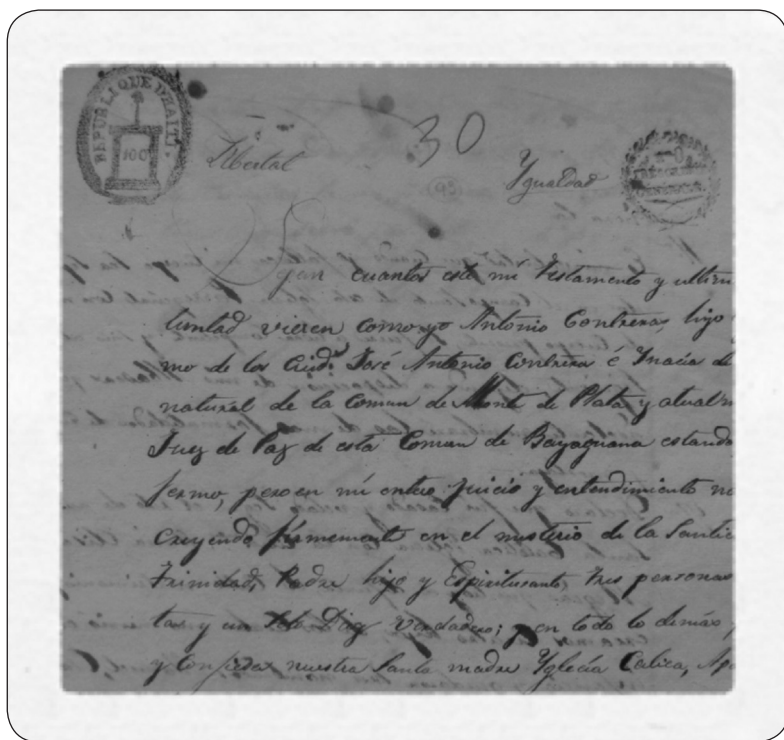 REPUBLIQUE D'HAITI.
100
Libertad
30
93
Ygualdad
Sepan cuantos este mi testamento y ultim
luntad vieren como yo Antonio Contreras, hijo
mo de los ciud.s José Antonio Contrera é Ynacia de
natural de la Comun de Monte de Plata y atualm
Juez de Paz de esta Comun de Bayaguana estando
fermo, pero en mi entero juicio y entendimiento na
creyendo firmemente en el misterio de la Santic
Trinidad, Padre hijo y Espiritusanto tres personas
tas y un Solo Dios verdadero; y en todo lo demás
y confieza nuestra Santa madre Yglecia Catica, Apo